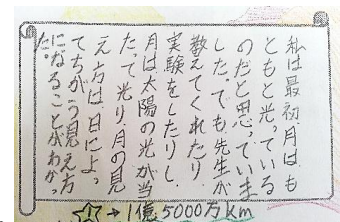 私は最初月はも
ともと光っている
のだと思っていま
した。でも先生が
教えてくれたり、
実験をしたりし、
月は太陽の光が当
たって光り、月の見
え方は、日によっ
てちがう見え方
になることがわかっ
た。
→1億5000万km